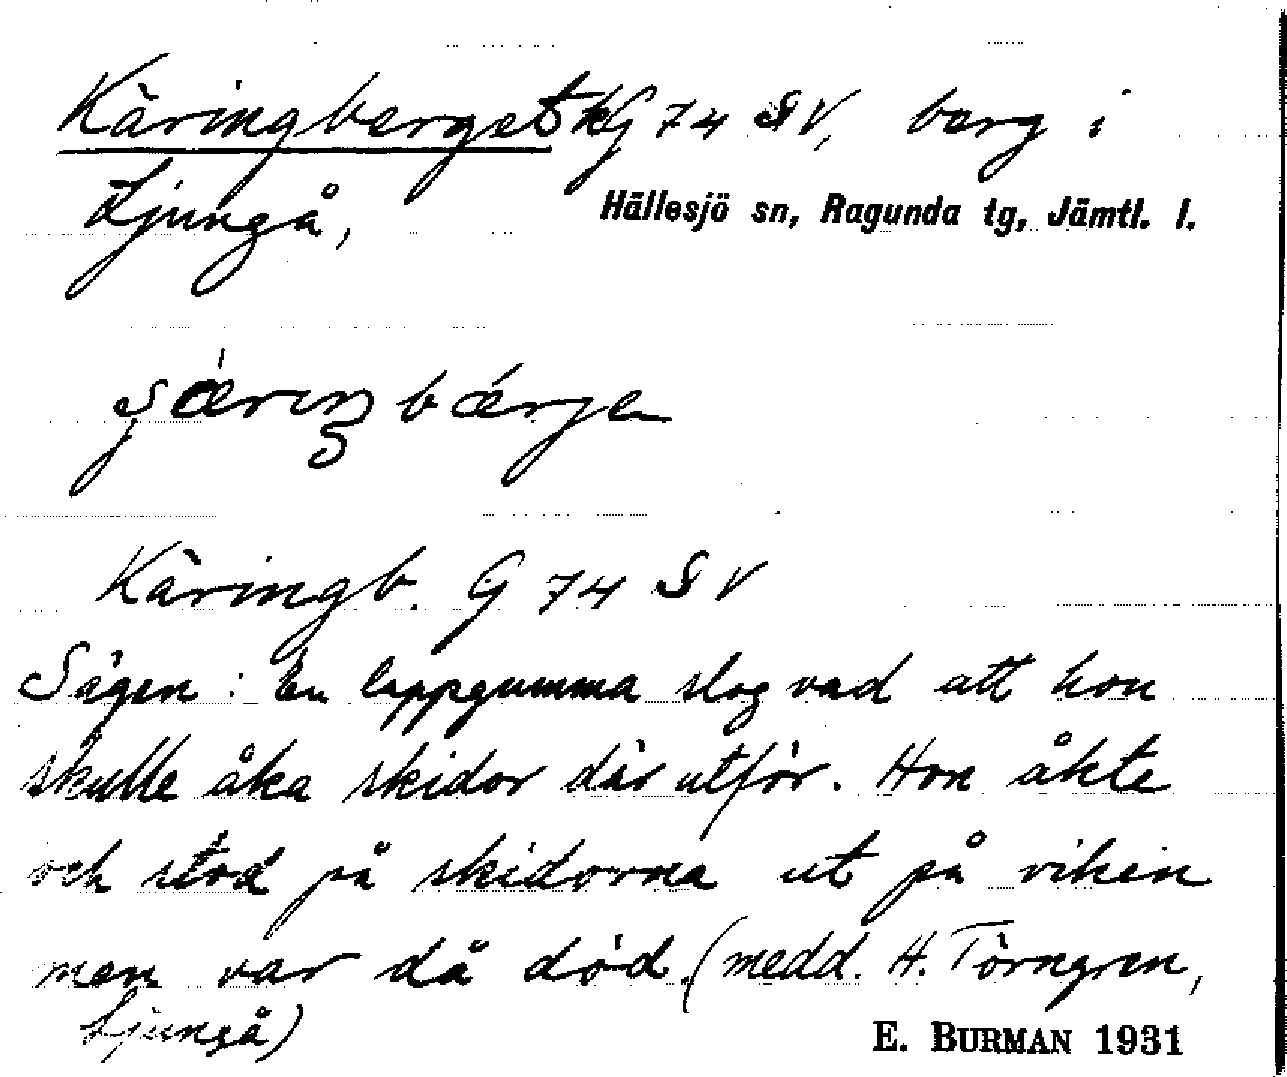 Käringberget KG 74 SV, berg i
Ljungå, Hällesjö sn, Ragunda tg, Jämtl. l.
Käringb. G 74 SV
Sägen: En lappgumma slog vad att hon
skulle åka skidor där utför. Hon åkte
och stod på skidorna ut på viken
men var då död. (medd. H. Törngren,
Ljungå)
E. BURMAN 1931